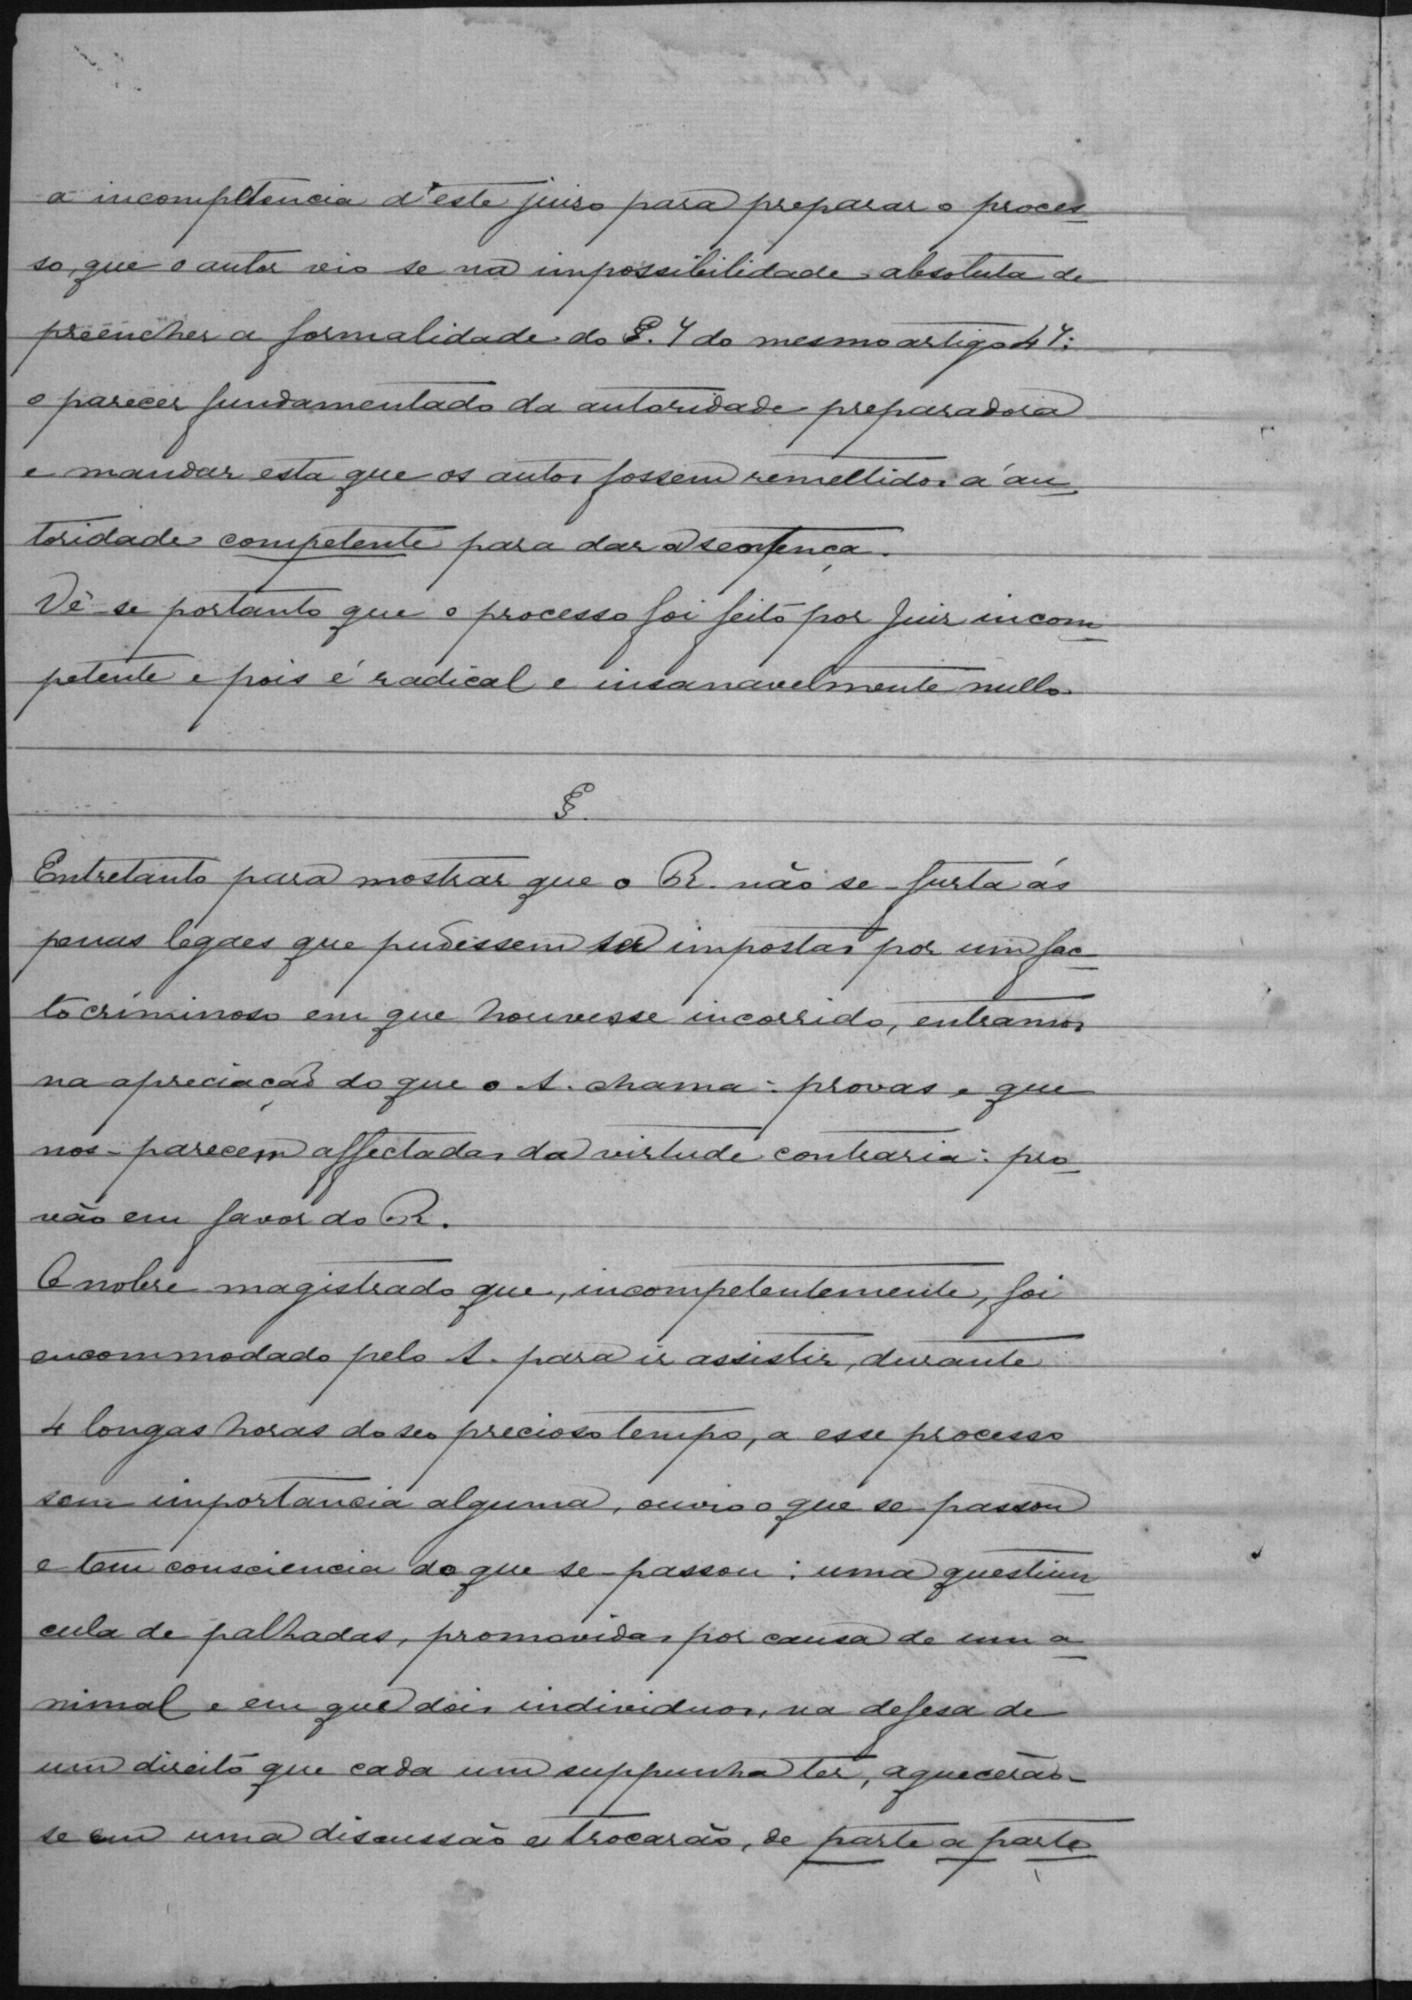 a incompetencia d'este juiso para preparar o proces
so, que o autor vio se na impossibilidade absoluta de
preencher a formalidade do §. 7 do mesmo artigo 47:
o parecer fundamentado da autoridade preparadora
e mandar esta que os autos fossem remettidos á au
toridade competente para dar a sentença.
Vê-se portanto que o processo foi feito por Juiz incom
petente e pois é radical e insanavelmente nullo.
§.
Entretanto para mostrar que o R. não se-furta ás
penas legaes que pudessem ser impostas por um fac
to criminoso em que houvesse incorrido, entramos
na apreciação do que o A. chama: provas e que
nos-parecem affectadas da virtude contraria: pro
vão em favor do R.
O nobre magistrado que, incompetentemente, foi
encommodado pelo A. para ir assistir, durante
4 longas horas do seo precioso tempo, a esse processo
sem importancia alguma, ouvio o que se-passou
e tem consciencia do que se-passou: uma questiun
cula de palhadas, promovidas por causa de um a
nimal e em que dois individuos, na defesa de
um direito que cada um suppunha ter, aquecerão-
se em uma discussão e trocarão, de parte a parte